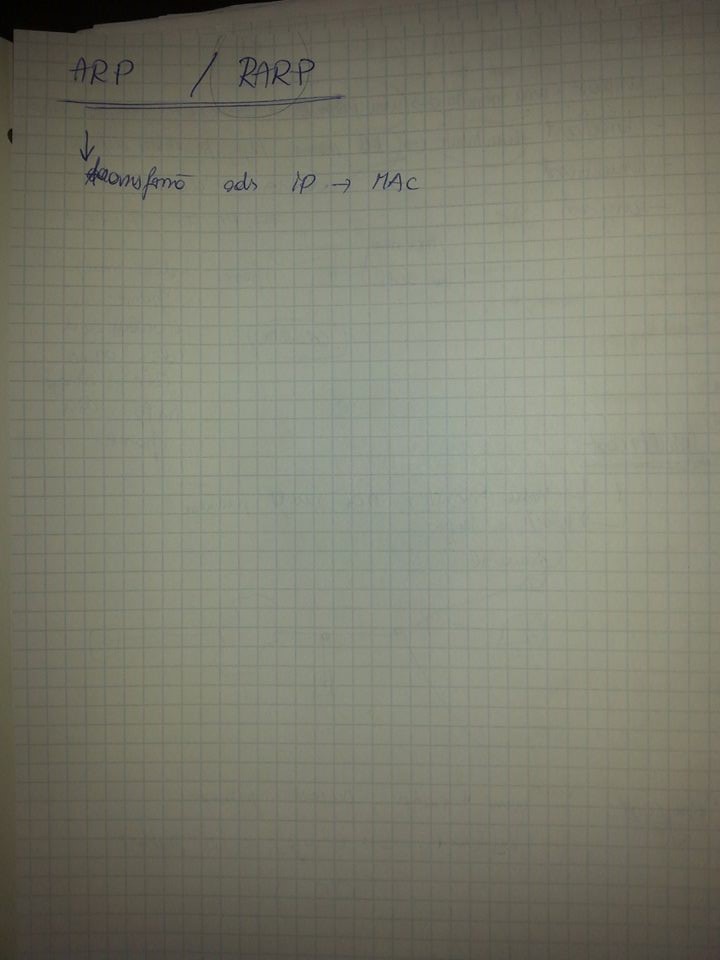 ARP / RARP
↓
transformă adr IP → MAC